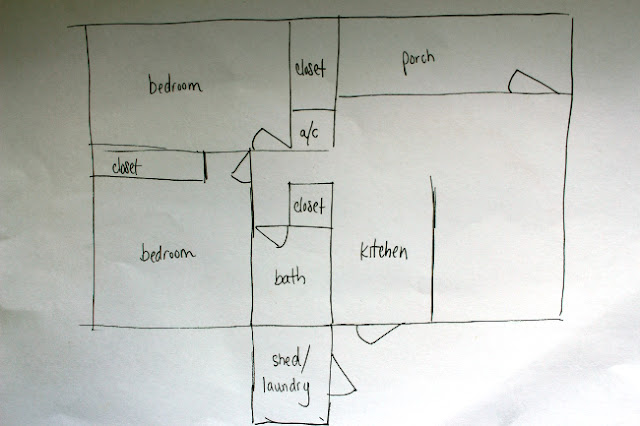 bedroom
closet
porch
a/c
closet
closet
bedroom
bath
kitchen
shed/
laundry